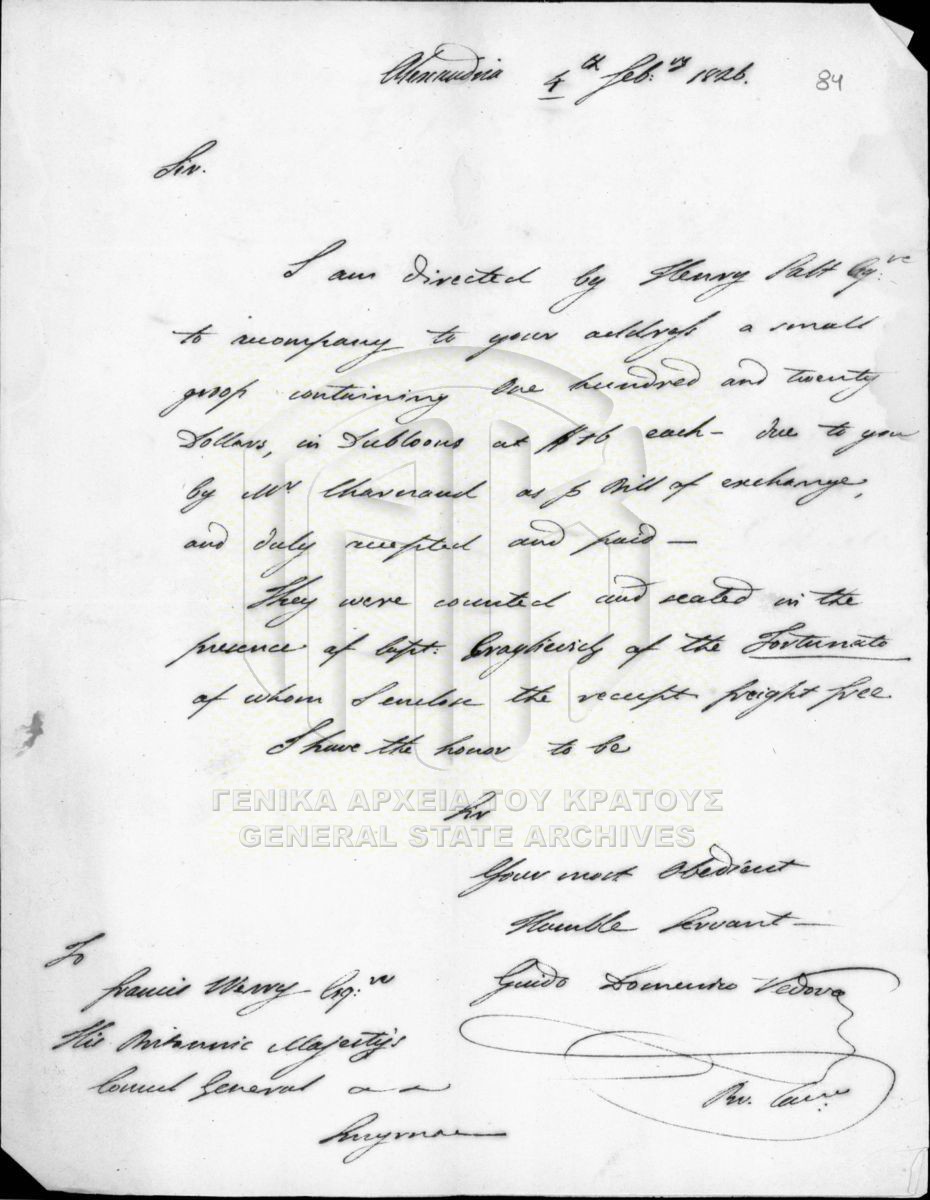 Alexandria 4th Feb:ry 1826.
84
Sir.
I am directed by Henry Salt Esq:re
to accompany to your address a small
groop containing One hundred and twenty
Dollars, in Dubloons at $16 each - due to you
by Mr Charnaud as p Bill of exchange,
and duly accepted and paid -
They were counted and sealed in the
presence of Capt: of the Fortunato
of whom I enclose the receipt freight free
I have the honor to be
Sir
ΓΕΝΙΚΑ ΑΡΧΕΙΑ ΤΟΥ ΚΡΑΤΟΥΣ
GENERAL STATE ARCHIVES
Your most Obedient
Humble Servant -
Guido Domenico Vedova
To
Francis Werry Esq:re
His Britannic Majesty's
Consul General
Smyrna